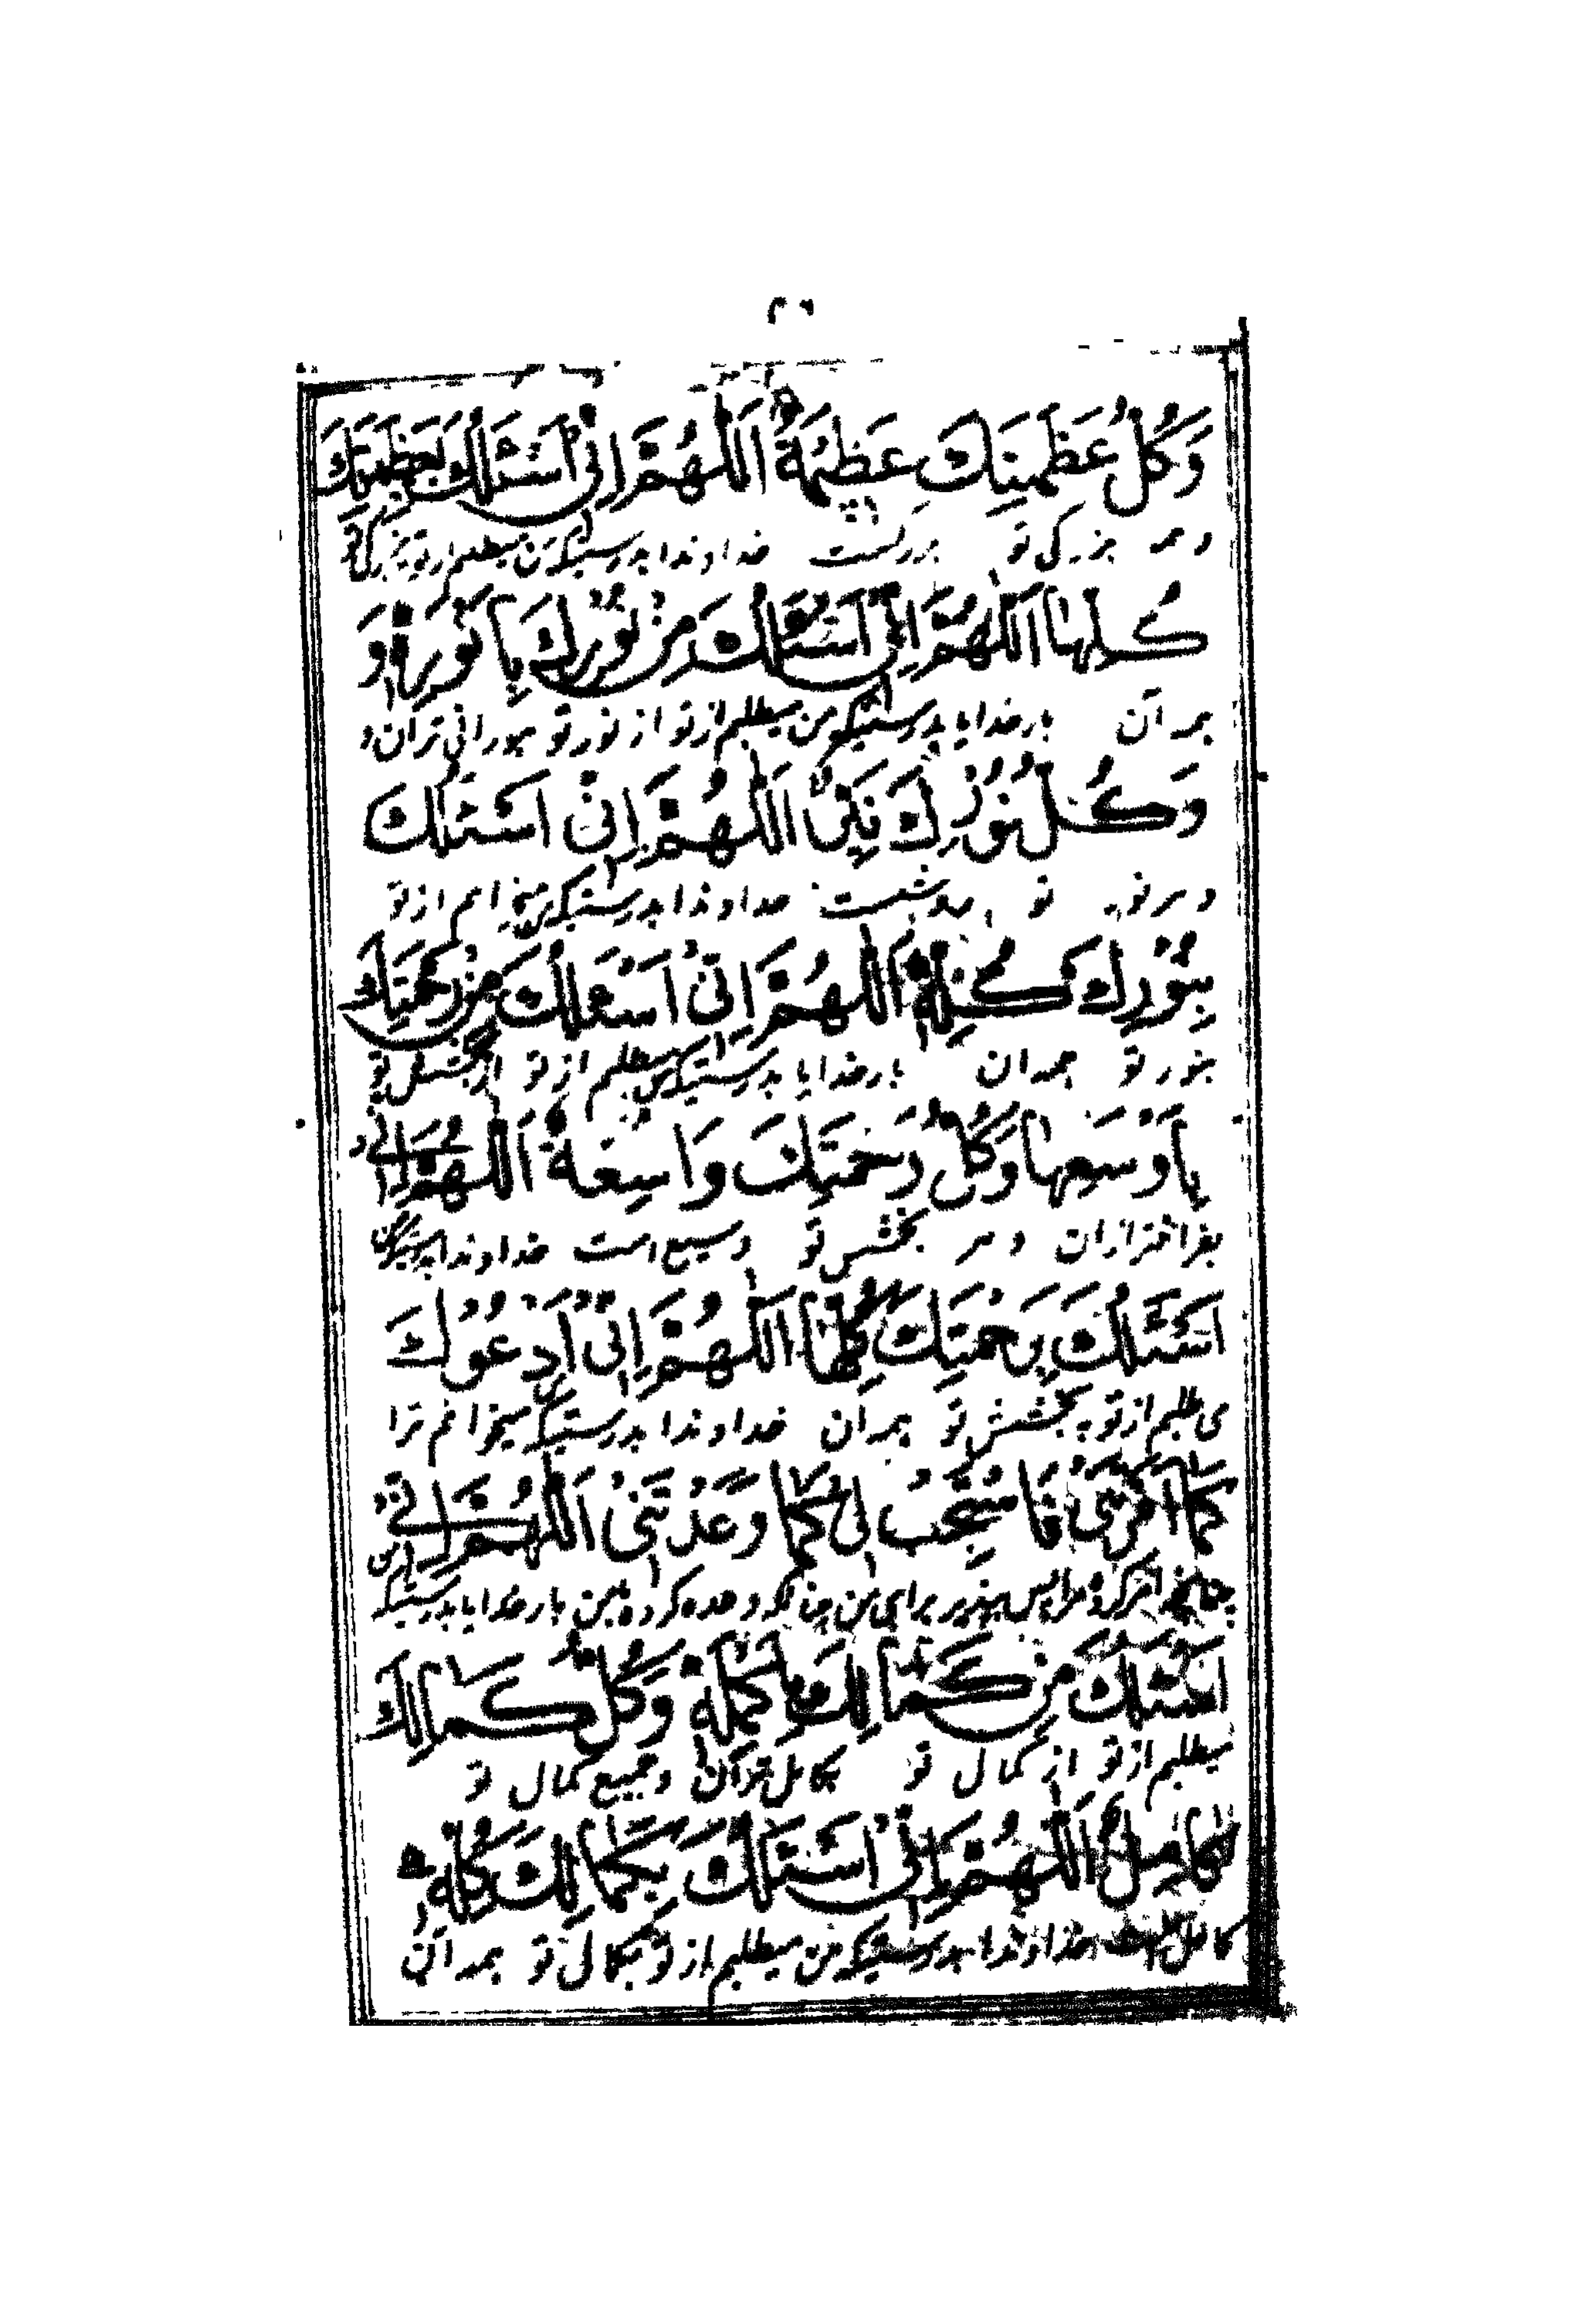 ۲۶
وَكُلُّ عَظَمَتِكَ عَظِيمَةٌ اَللّٰهُمَّ اِنّى اَسْئَلُكَ بِعَظَمَتِكَ
و هر بزرگی تو بزرگست خداوندا بدرستیکه من میطلبم از تو ببزرگی تو
كُلِّهَا اَللّٰهُمَّ اِنّى اَسْئَلُكَ مِنْ نُورِكَ بِاَنْوَرِهِ وَ
همه آن بار خدایا بدرستیکه من میطلبم از تو از نور تو بنورانی تران و
وَكُلُّ نُورِكَ نَيِّرٌ اَللّٰهُمَّ اِنّى اَسْئَلُكَ
و هر نور تو خداوندا بدرستیکه من میخواهم از تو
بِنُورِكَ كُلِّهِ اَللّٰهُمَّ اِنّى اَسْئَلُكَ مِنْ رَحْمَتِكَ
بنور تو همه ان بار خدایا بدرستیکه من میطلبم از تو از بخشش تو
بِاَوْسَعِهَا وَكُلُّ رَحْمَتِكَ وَاسِعَةٌ اَللّٰهُمَّ اِنّى
بفراختر ازان و هر بخشش تو وسیع است خداوندا بدرستیکه من
اَسْئَلُكَ بِرَحْمَتِكَ كُلِّهَا اَللّٰهُمَّ اِنّى اَدْعُوكَ
می طلبم از تو به بخشش تو همه آن خداوندا بدرستیکه من میخوانم ترا
كَمَا اَمَرْتَنى فَاسْتَجِبْ لى كَمَا وَعَدْتَنى اَللّٰهُمَّ اِنّى
چنانچه امر کرده مرا پس بپذیر برای من چنانکه وعده کرده بمن بار خدایا بدرستیکه من
اَسْئَلُكَ مِنْ كَمَالِكَ بِاَكْمَلِهِ وَكُلُّ كَمَالِكَ
میطلبم از تو از کمال تو بکامل تر آن و جمیع کمال تو
كَامِلٌ اَللّٰهُمَّ اِنّى اَسْئَلُكَ بِكَمَالِكَ كُلِّهِ
کامل است خداوندا بدرستیکه من میطلبم از تو بکمال تو همه آن